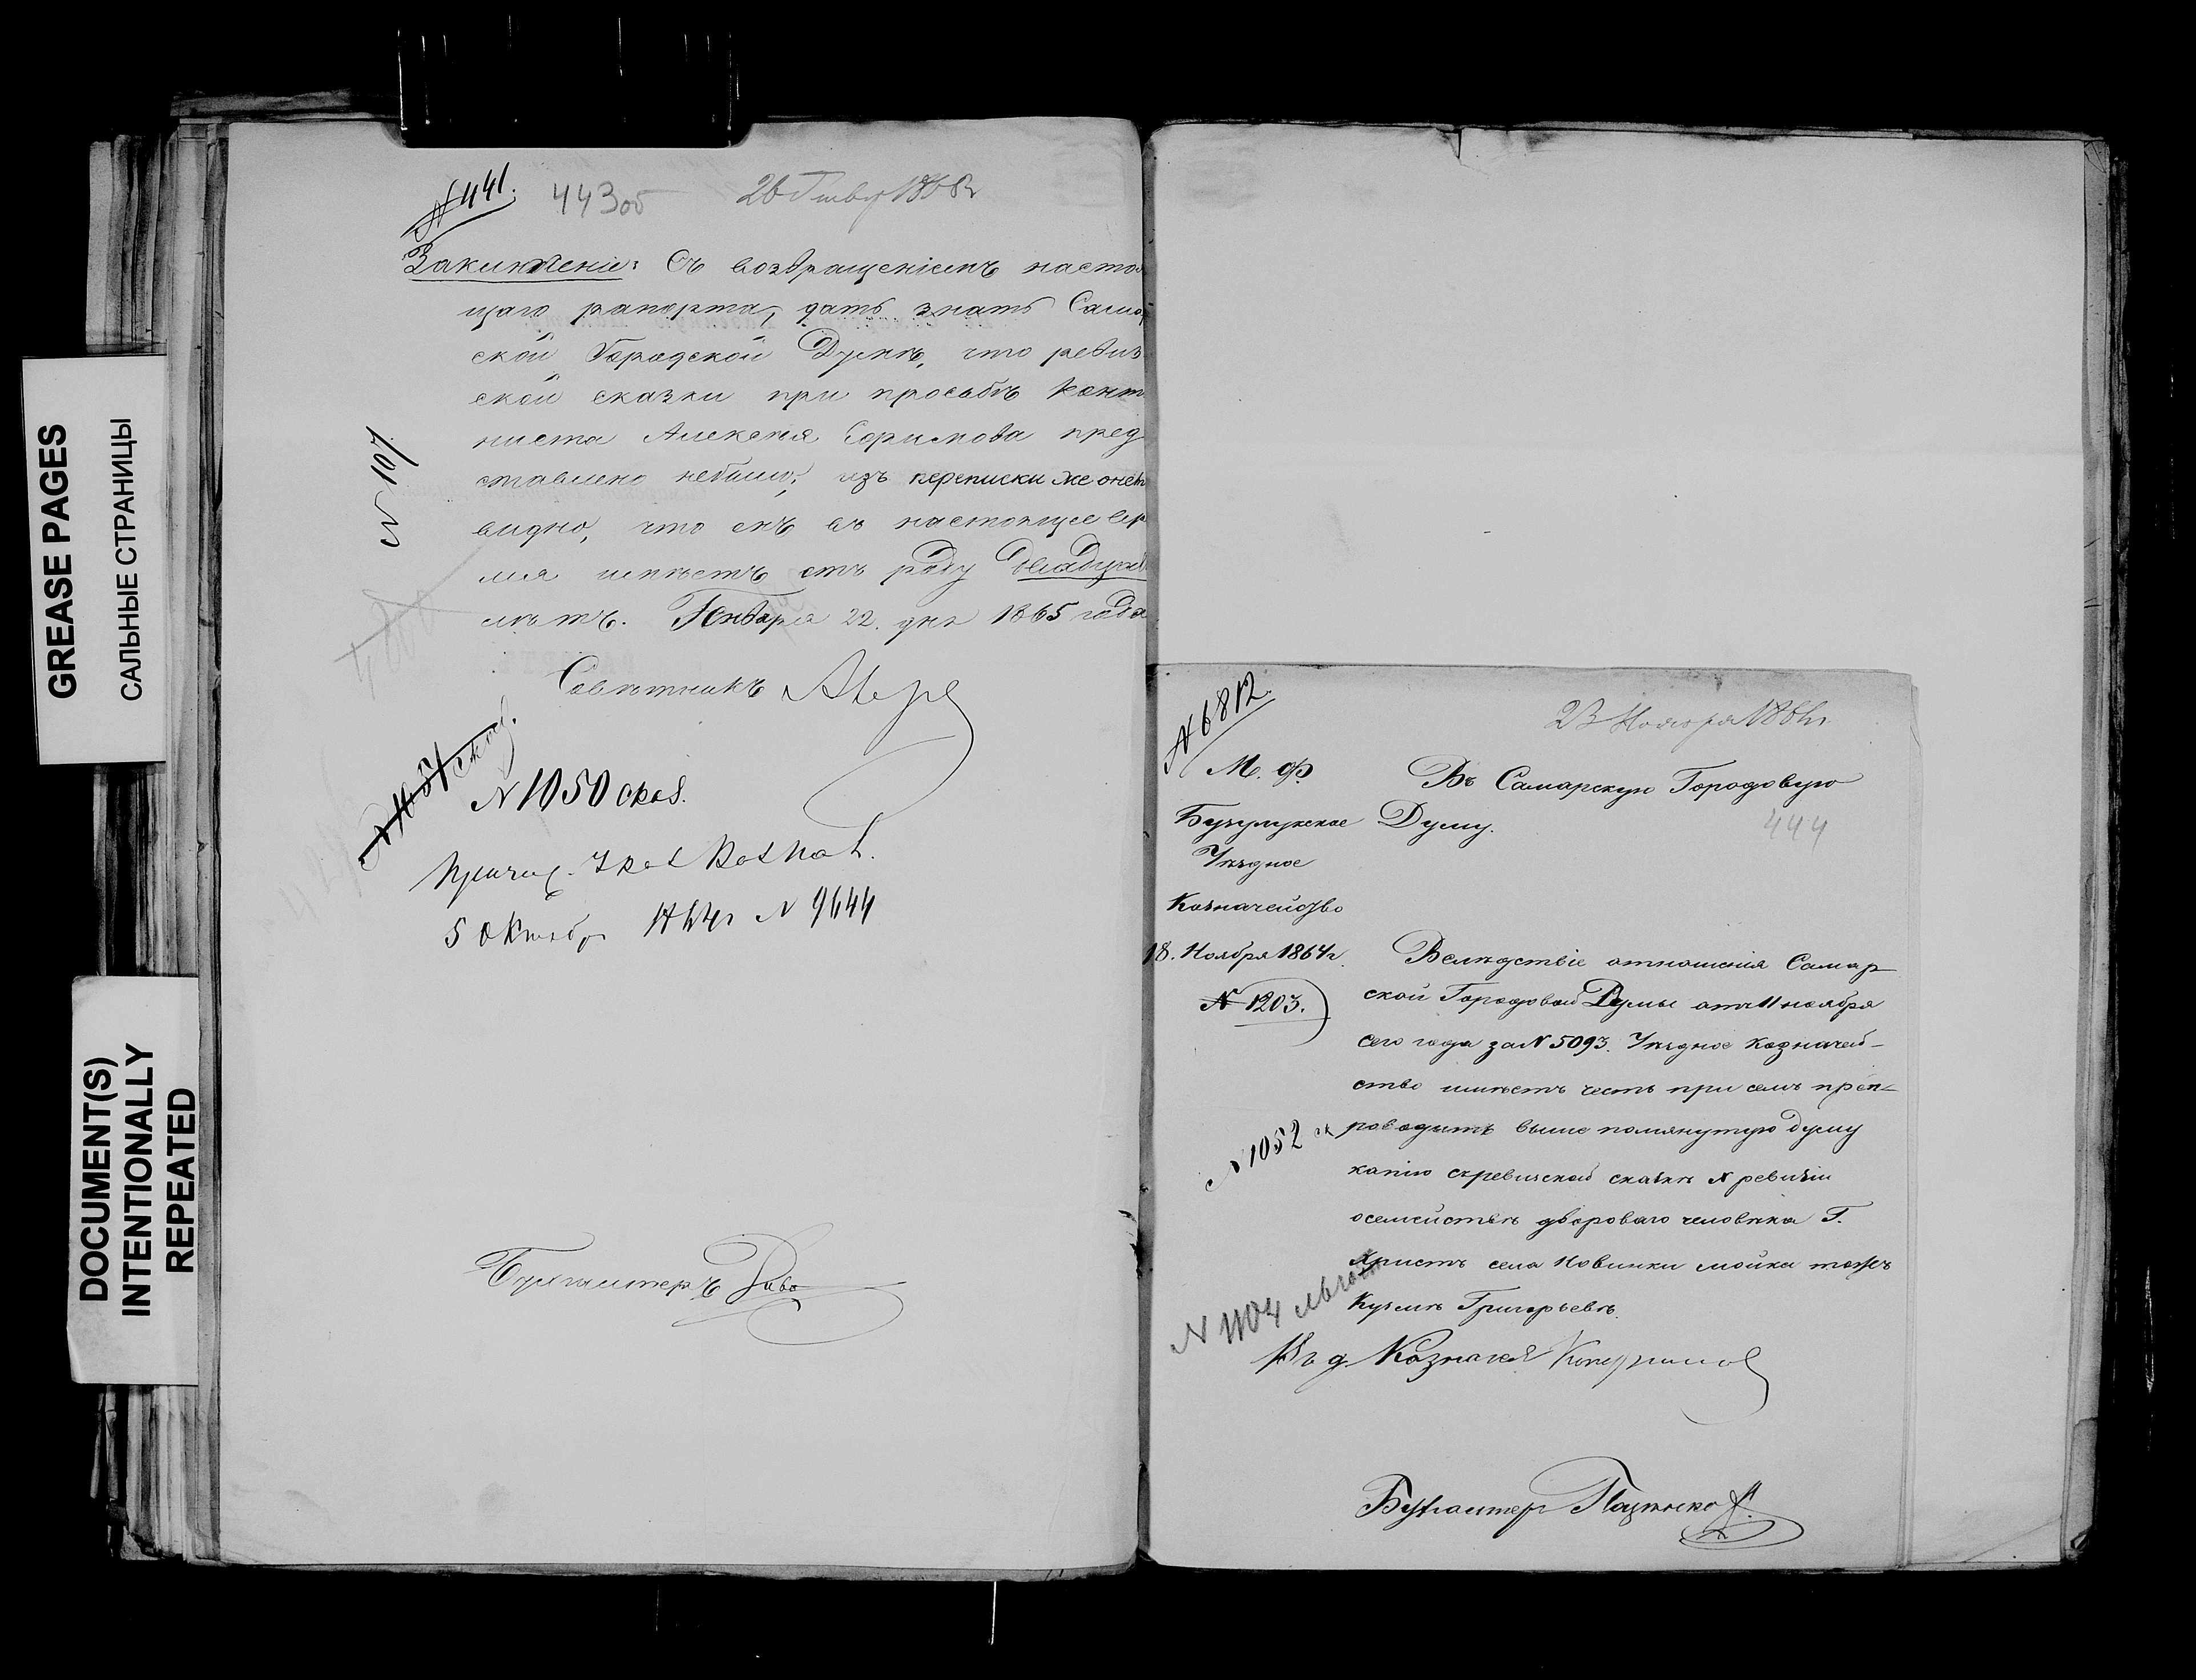 GREASE PAGES
САЛЬНЫЕ СТРАНИЦЫ
DOCUMENT(S)
INTENTIONALLY
REPEATED
№ 441.
443 об
26 Генвр 1865 г
Заключеніе: Съ возвращеніемъ настоя
щаго рапорта, дать знать Самар
ской Городской Думѣ, что ревиз
ской сказки при просьбѣ Кант
ниста Алексѣя Ефимова пред
ставлено небыло; изъ переписки же
видно, что онъ въ настоящее вре
мя имѣетъ отъ роду двадцать
лѣтъ. Генваря 22. дня 1865 года
№ 107
Совѣтникъ
№ 1050 скаѣ.
5 Октября 1864 г № 9644
Бухгалтеръ
№ 6812.
23 Ноября 1864 г.
М. Ф.
Бузулукское
Уѣздное
Казначейство
18. Ноября 1864 г.
№ 1203.
Въ Самарскую Городовую
Думу.
444
Вслѣдствіе отношенія Самар
ской Городовой Думы отъ 11 ноября
сего года за № 5093. Уѣздное Казначей-
ство имѣетъ честь при семъ преп-
роводить выше помянутую думу
копію съ ревизской сказки № ревизіи
осемействѣ двороваго человѣка Г.
села Новинки
Кузьмѣ Григорьевѣ.
№ 1052
№ 1104
Казначея
Бухгалтер